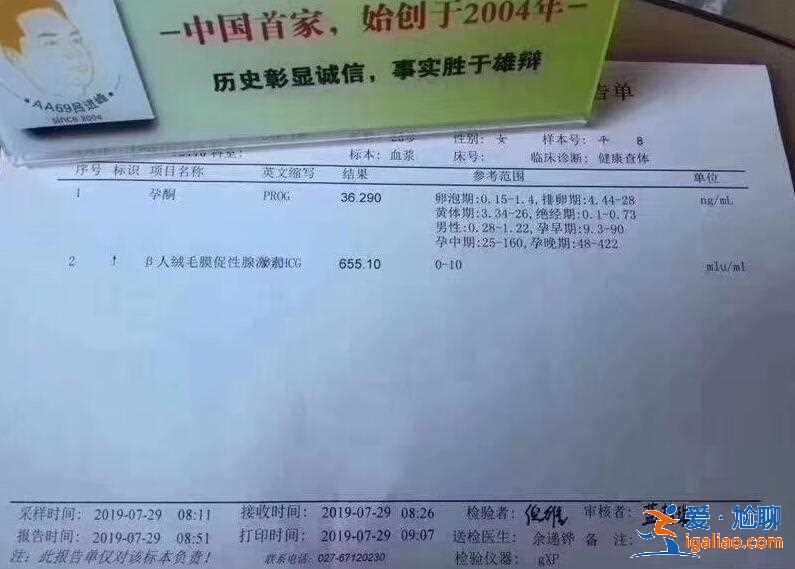 -中国首家，始创于2004年-
历史彰显诚信，事实胜于雄辩
AA69吕进峰
since 2004
告单
性别: 女 样本号: 平 8
标本: 血浆 床号: 临床诊断: 健康查体
序号 标识 项目名称 英文缩写 结果 参考范围 单位
1 孕酮 PROG 36.290 卵泡期:0.15-1.4,排卵期:4.44-28 ng/mL
黄体期:3.34-26,绝经期:0.1-0.73
男性:0.28-1.22,孕早期:9.3-90
孕中期:25-160,孕晚期:48-422
2 ↑ β人绒毛膜促性腺激 HCG 655.10 0-10 mlu/ml
采样时间: 2019-07-29 08:11 接收时间: 2019-07-29 08:26 检验者: 审核者:
报告时间: 2019-07-29 08:51 打印时间: 2019-07-29 09:07 送检医生: 余递铧 备 注:
注: 此报告单仅对该标本负责! 联系电话: 027-67120230 检验仪器: gXP
爱·尬聊
igaliao.com